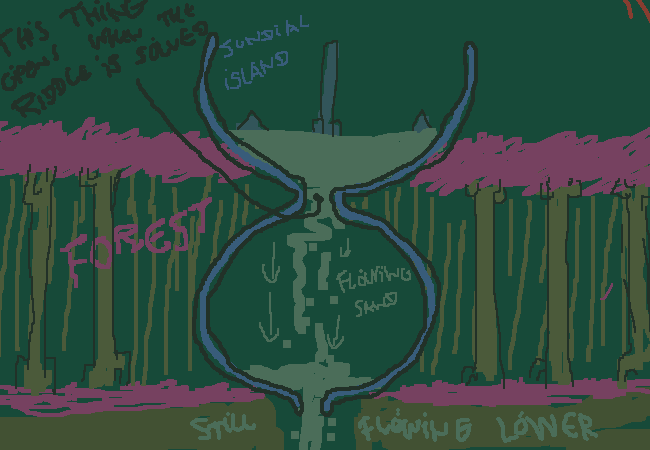 THIS THING
OPENS WHEN THE
RIDDLE IS SOLVED
SUNDIAL
ISLAND
FOREST
FLOWING
SAND
STILL FLOWING LOWER